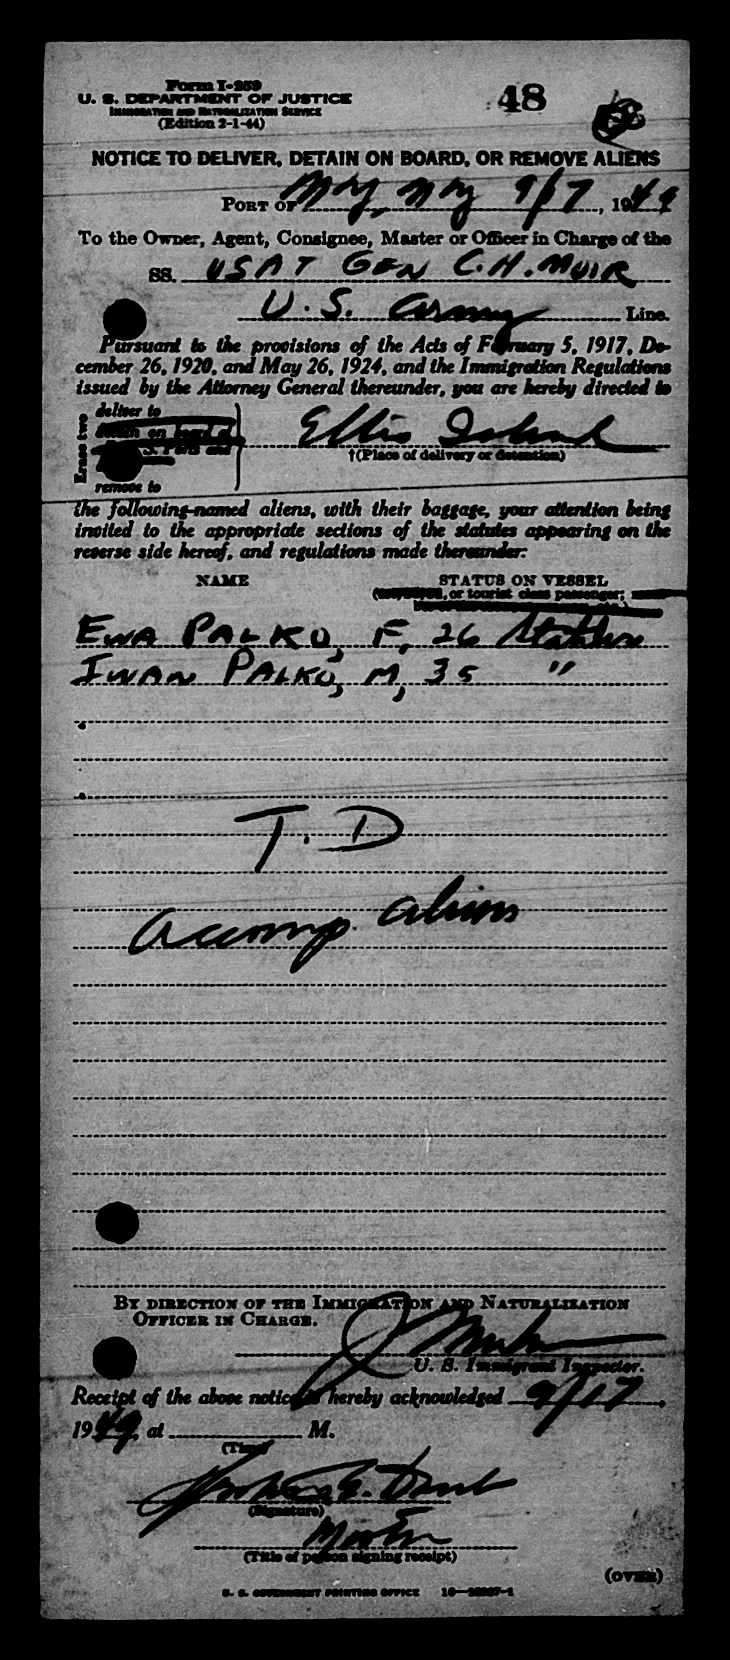 Form I-259
U. S. DEPARTMENT OF JUSTICE
IMMIGRATION AND NATURALIZATION SERVICE
(Edition 2-1-44)
48
NOTICE TO DELIVER, DETAIN ON BOARD, OR REMOVE ALIENS
PORT OF NY, NY 9/17, 1949
To the Owner, Agent, Consignee, Master or Officer in Charge of the
SS. USAT GEN C.H. MUIR
U.S. Army Line.
Pursuant to the provisions of the Acts of February 5, 1917, De-
cember 26, 1920, and May 26, 1924, and the Immigration Regulations
issued by the Attorney General thereunder, you are hereby directed to
Erase two
deliver to
detain on board
remove to
Ellis Island
†(Place of delivery or detention)
the following-named aliens, with their baggage, your attention being
invited to the appropriate sections of the statutes appearing on the
reverse side hereof, and regulations made thereunder:
NAME STATUS ON VESSEL
, or tourist class passenger;
EWA PALKO, F, 26
IWAN PALKO, M, 35 "
T. D
Accomp. aliens
BY DIRECTION OF THE IMMIGRATION AND NATURALIZATION
OFFICER IN CHARGE.
U. S. Immigrant Inspector.
Receipt of the above notice is hereby acknowledged 9/17,
1949, at M.
(Time)
(Signature)
Master
(Title of person signing receipt)
(OVER)
U. S. GOVERNMENT PRINTING OFFICE